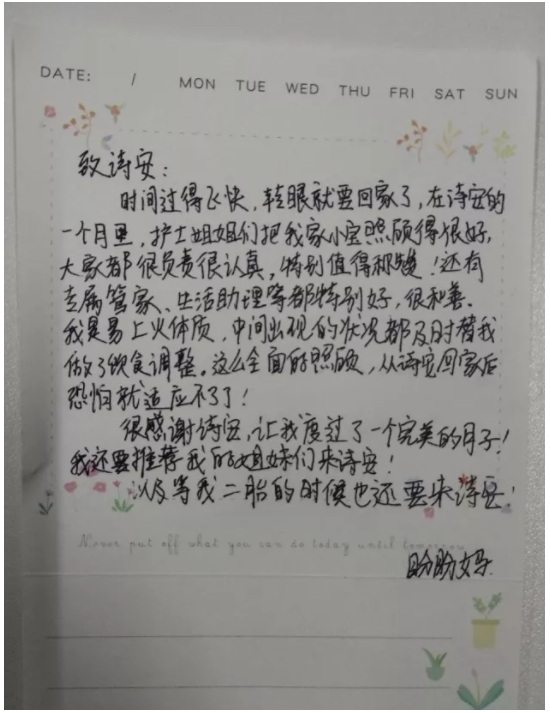 DATE: / MON TUE WED THU FRI SAT SUN
致诗安：
时间过得飞快，转眼就要回家了，在诗安的
一个月里，护士姐姐们把我家小宝照顾得很好，
大家都很负责很认真，特别值得称赞！还有
专属管家、生活助理等都特别好，很和善.
我是易上火体质，中间出现的状况都及时替我
做了饮食调整。这么全面的照顾，从诗安回家后
恐怕就适应不了了！
很感谢诗安，让我度过了一个完美的月子！
我还要推荐我的姐妹们来诗安！
以及等我二胎的时候也还要来诗安！
Never put off what you can do today until tomorrow
盼盼妈